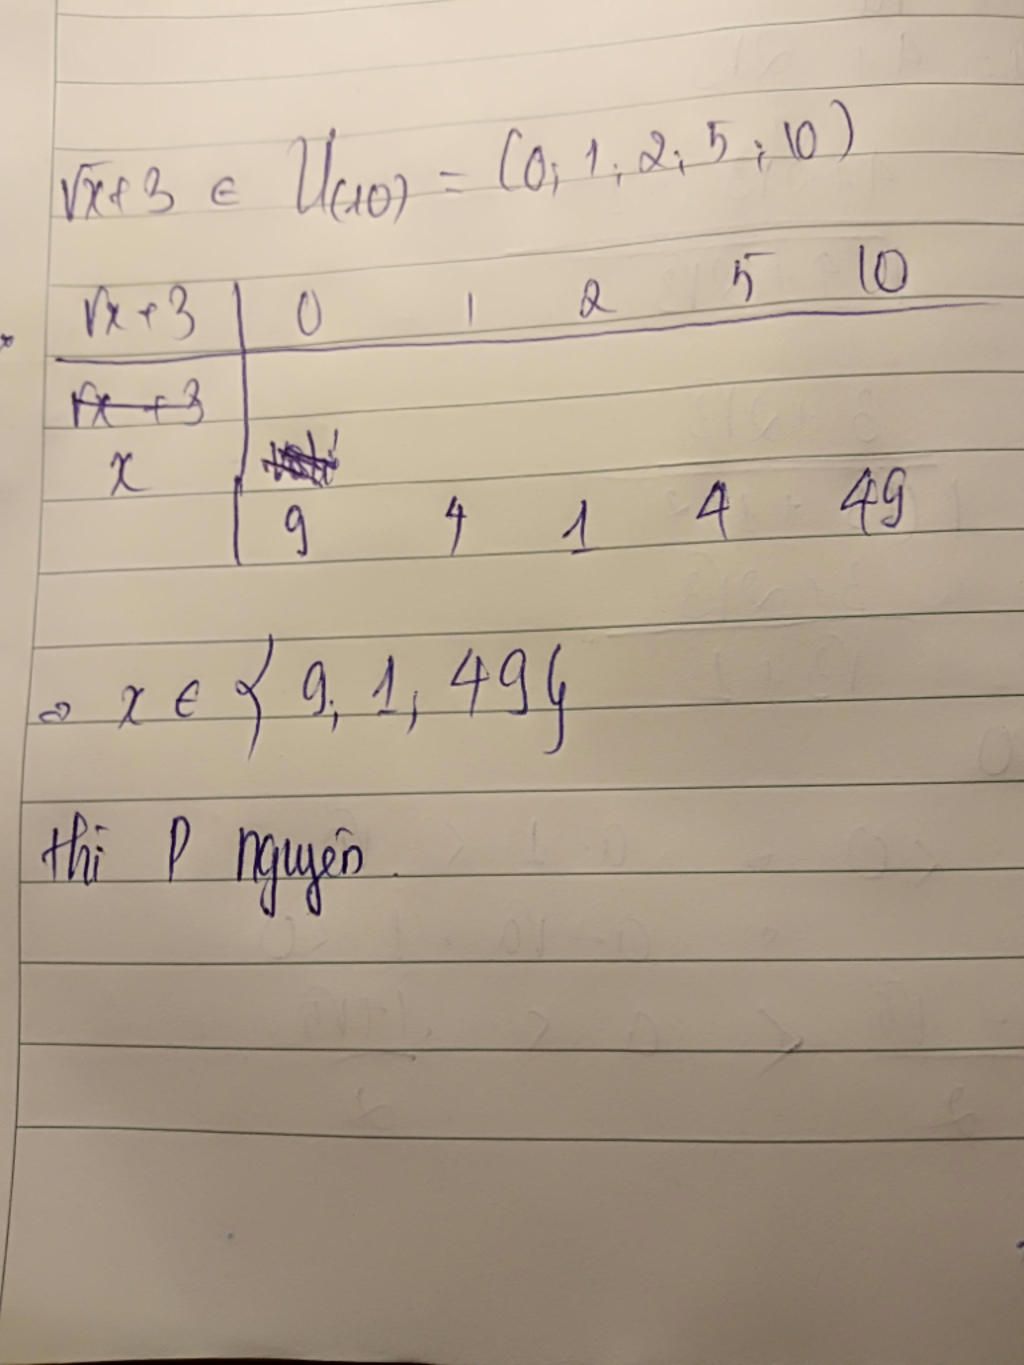 √x+3 ∈ Ư(10) = (0; 1; 2; 5; 10)
√x+3 0 1 2 5 10
√x+3
x
9 4 1 4 49
⇒ x ∈ {9; 1, 49}
thì P nguyên.